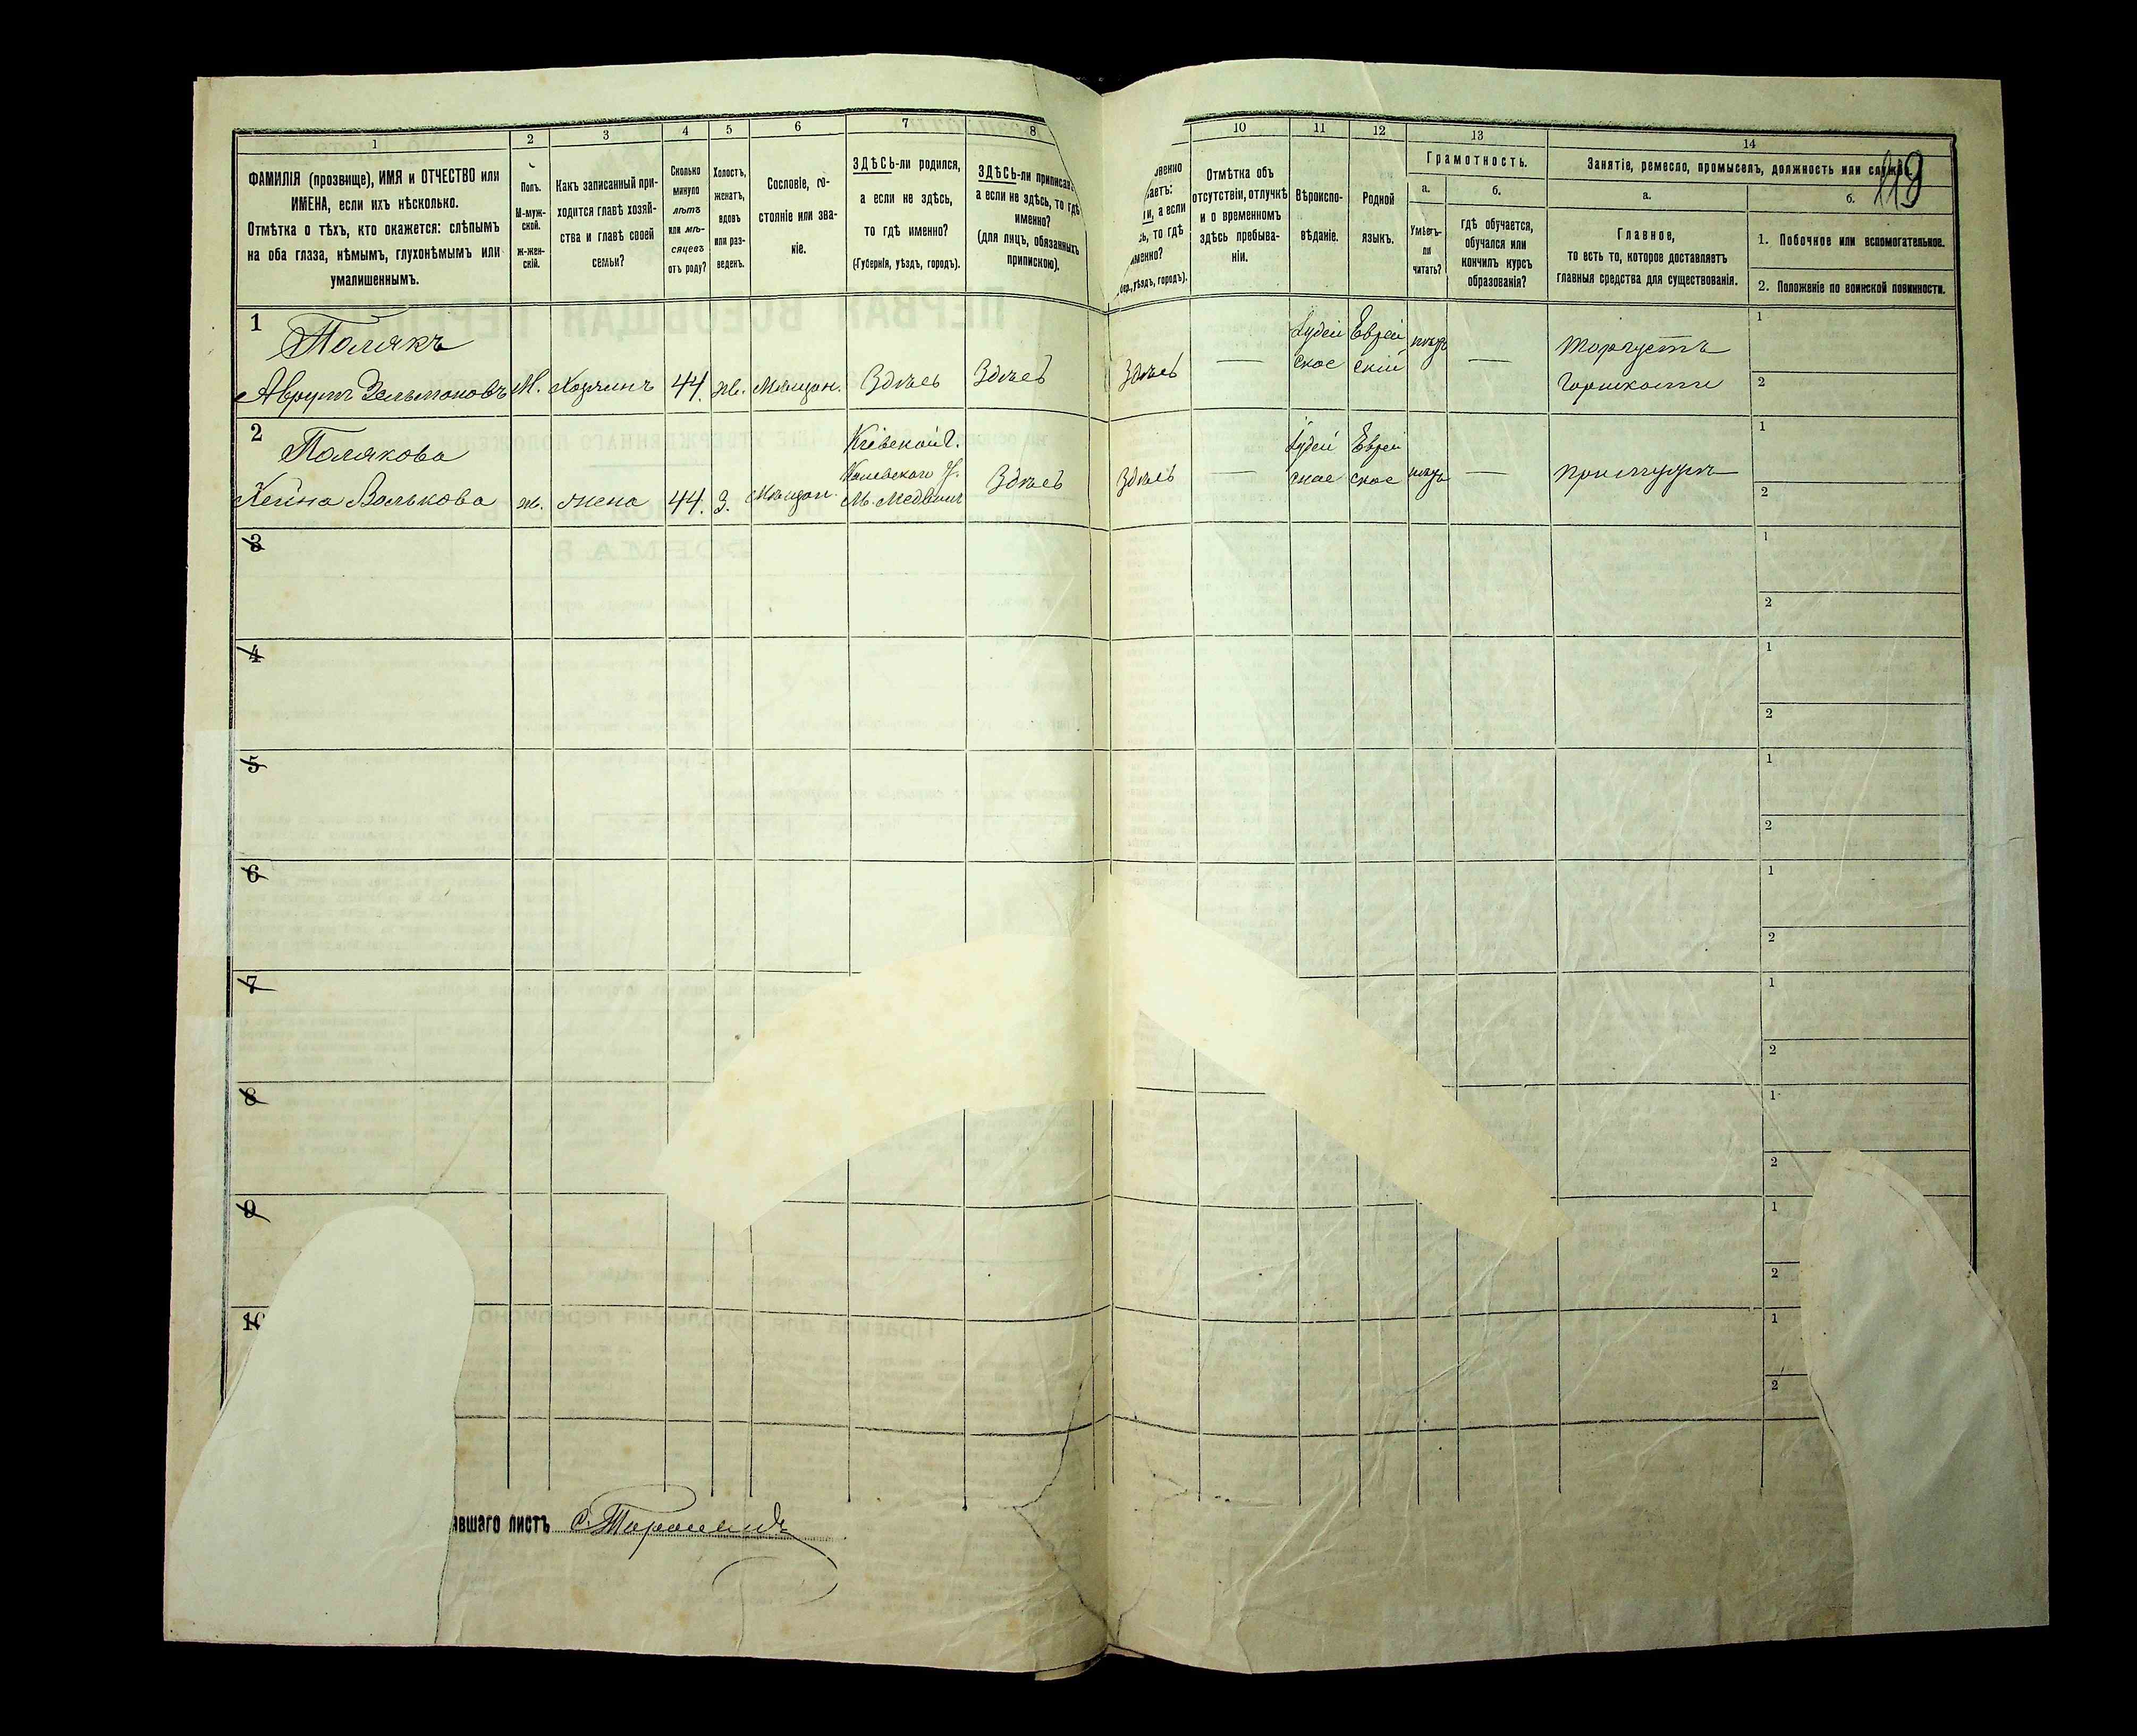 1 2 3 4 5 6 7 8
ФАМИЛІЯ (прозвище), ИМЯ и ОТЧЕСТВО или
ИМЕНА, если ихъ нѣсколько.
Отмѣтка о тѣхъ, кто окажется: слѣпымъ
на оба глаза, нѣмымъ, глухонѣмымъ или
умалишеннымъ.
Полъ.
М-муж-
ской.
ж-жен-
скій.
Какъ записанный при-
ходится главѣ хозяй-
ства и главѣ своей
семьи?
Сколько
минуло
лѣтъ
или мѣ-
сяцевъ
отъ роду?
Холостъ,
женатъ,
вдовъ
или раз-
веденъ.
Сословіе, со-
стояніе или зва-
ніе.
ЗДѢСЬ-ли родился,
а если не здѣсь,
то гдѣ именно?
(Губернія, уѣздъ, городъ).
ЗДѢСЬ-ли приписанъ,
а если не здѣсь, то гдѣ
именно?
(для лицъ, обязанныхъ
припискою).
1
Полякъ
Аврумъ Зельмановъ М. Хозяинъ 44. ж. Мѣщан. Здѣсь Здѣсь
2
Полякова
Хейна Волькова ж. жена 44. З. Мѣщан. Кіевской г. Каневскаго у. М. Медвинъ Здѣсь
3
4
5
6
7
8
9
10
авшаго листъ
10 11 12 13 14
венно
аетъ:
и, а если
ь, то гдѣ
менно?
бер., уѣздъ, городъ).
Отмѣтка объ
отсутствіи, отлучкѣ
и о временномъ
здѣсь пребыва-
ніи.
Вѣроиспо-
вѣданіе.
Родной
языкъ.
Грамотность.
а.
Умѣетъ-
ли
читать?
б.
гдѣ обучается,
обучался или
кончилъ курсъ
образованія?
Занятіе, ремесло, промыселъ, должность или служба.
119
а.
Главное,
то есть то, которое доставляетъ
главныя средства для существованія.
б.
1. Побочное или вспомогательное.
2. Положеніе по воинской повинности.
Здѣсь — Іудей
ское Еврей
скій — Торгуетъ
Горшками
1
2
Здѣсь — Іудей
ское Еврей
ское — При мужѣ
1
2
1
2
1
2
1
2
1
2
1
2
1
2
1
2
1
2